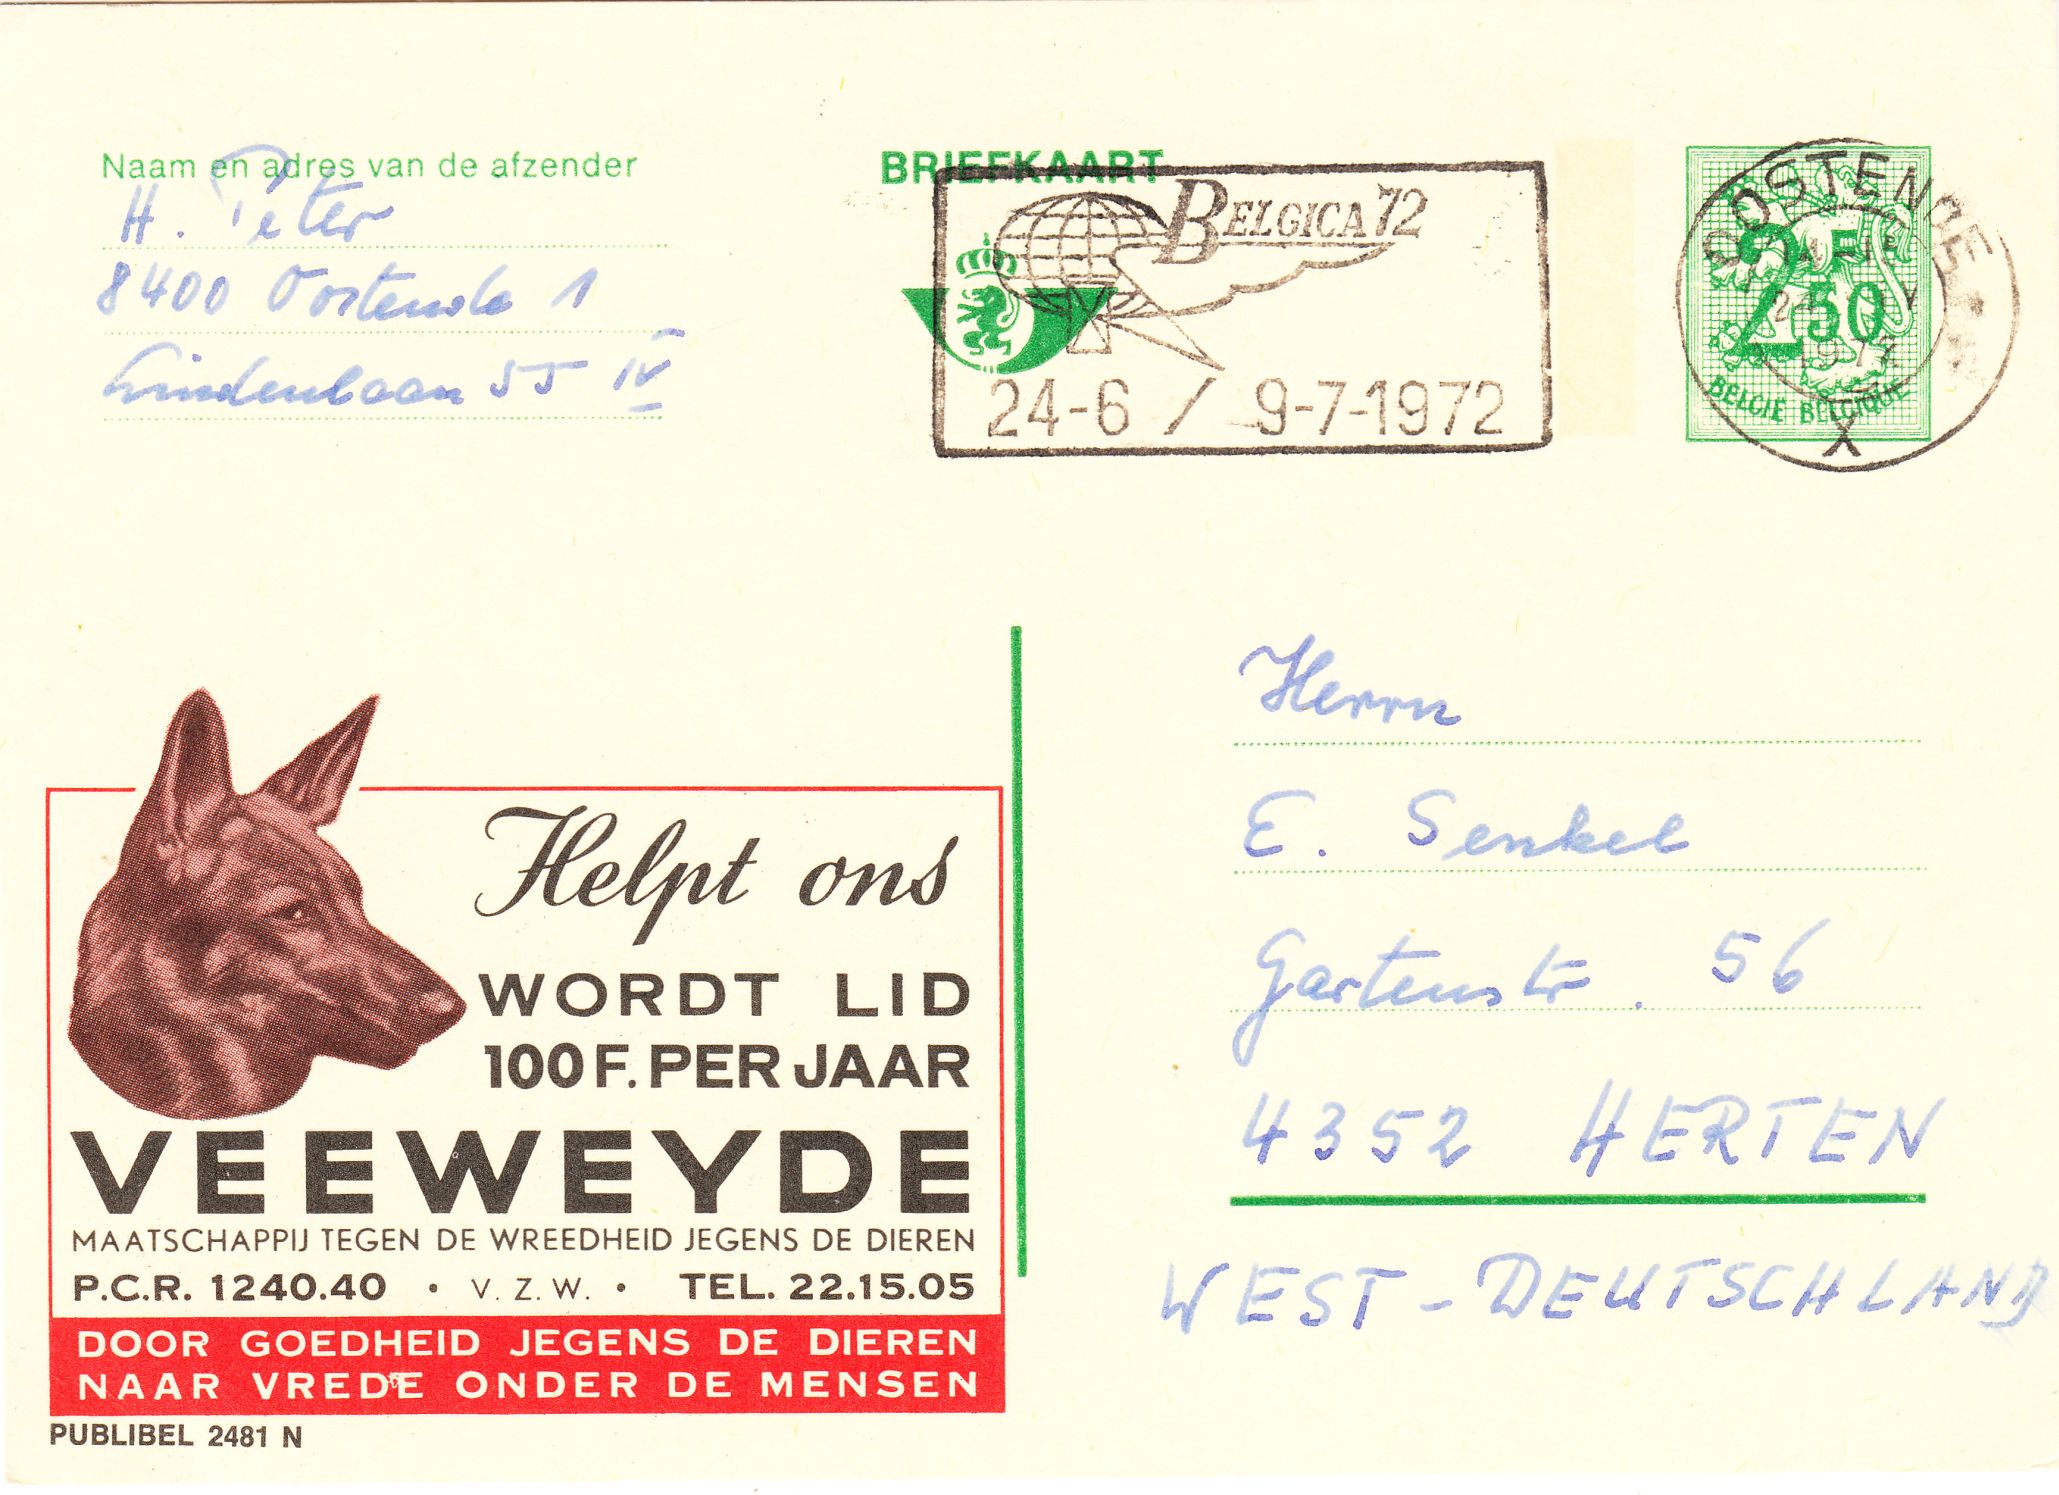 Naam en adres van de afzender
H. Peter
8400 Oostende 1
Lindenlaan 55 IV
BRIEFKAART
BELGICA 72
24-6 / 9-7-1972
OOSTENDE
X
2F
50
BELGIË BELGIQUE
Helpt ons
WORDT LID
100 F. PER JAAR
VEEWEYDE
MAATSCHAPPIJ TEGEN DE WREEDHEID JEGENS DE DIEREN
P.C.R. 1240.40 • V.Z.W. • TEL. 22.15.05
DOOR GOEDHEID JEGENS DE DIEREN
NAAR VREDE ONDER DE MENSEN
PUBLIBEL 2481 N
Herrn
E. Senkel
Gartenstr. 56
4352 HERTEN
WEST-DEUTSCHLAND